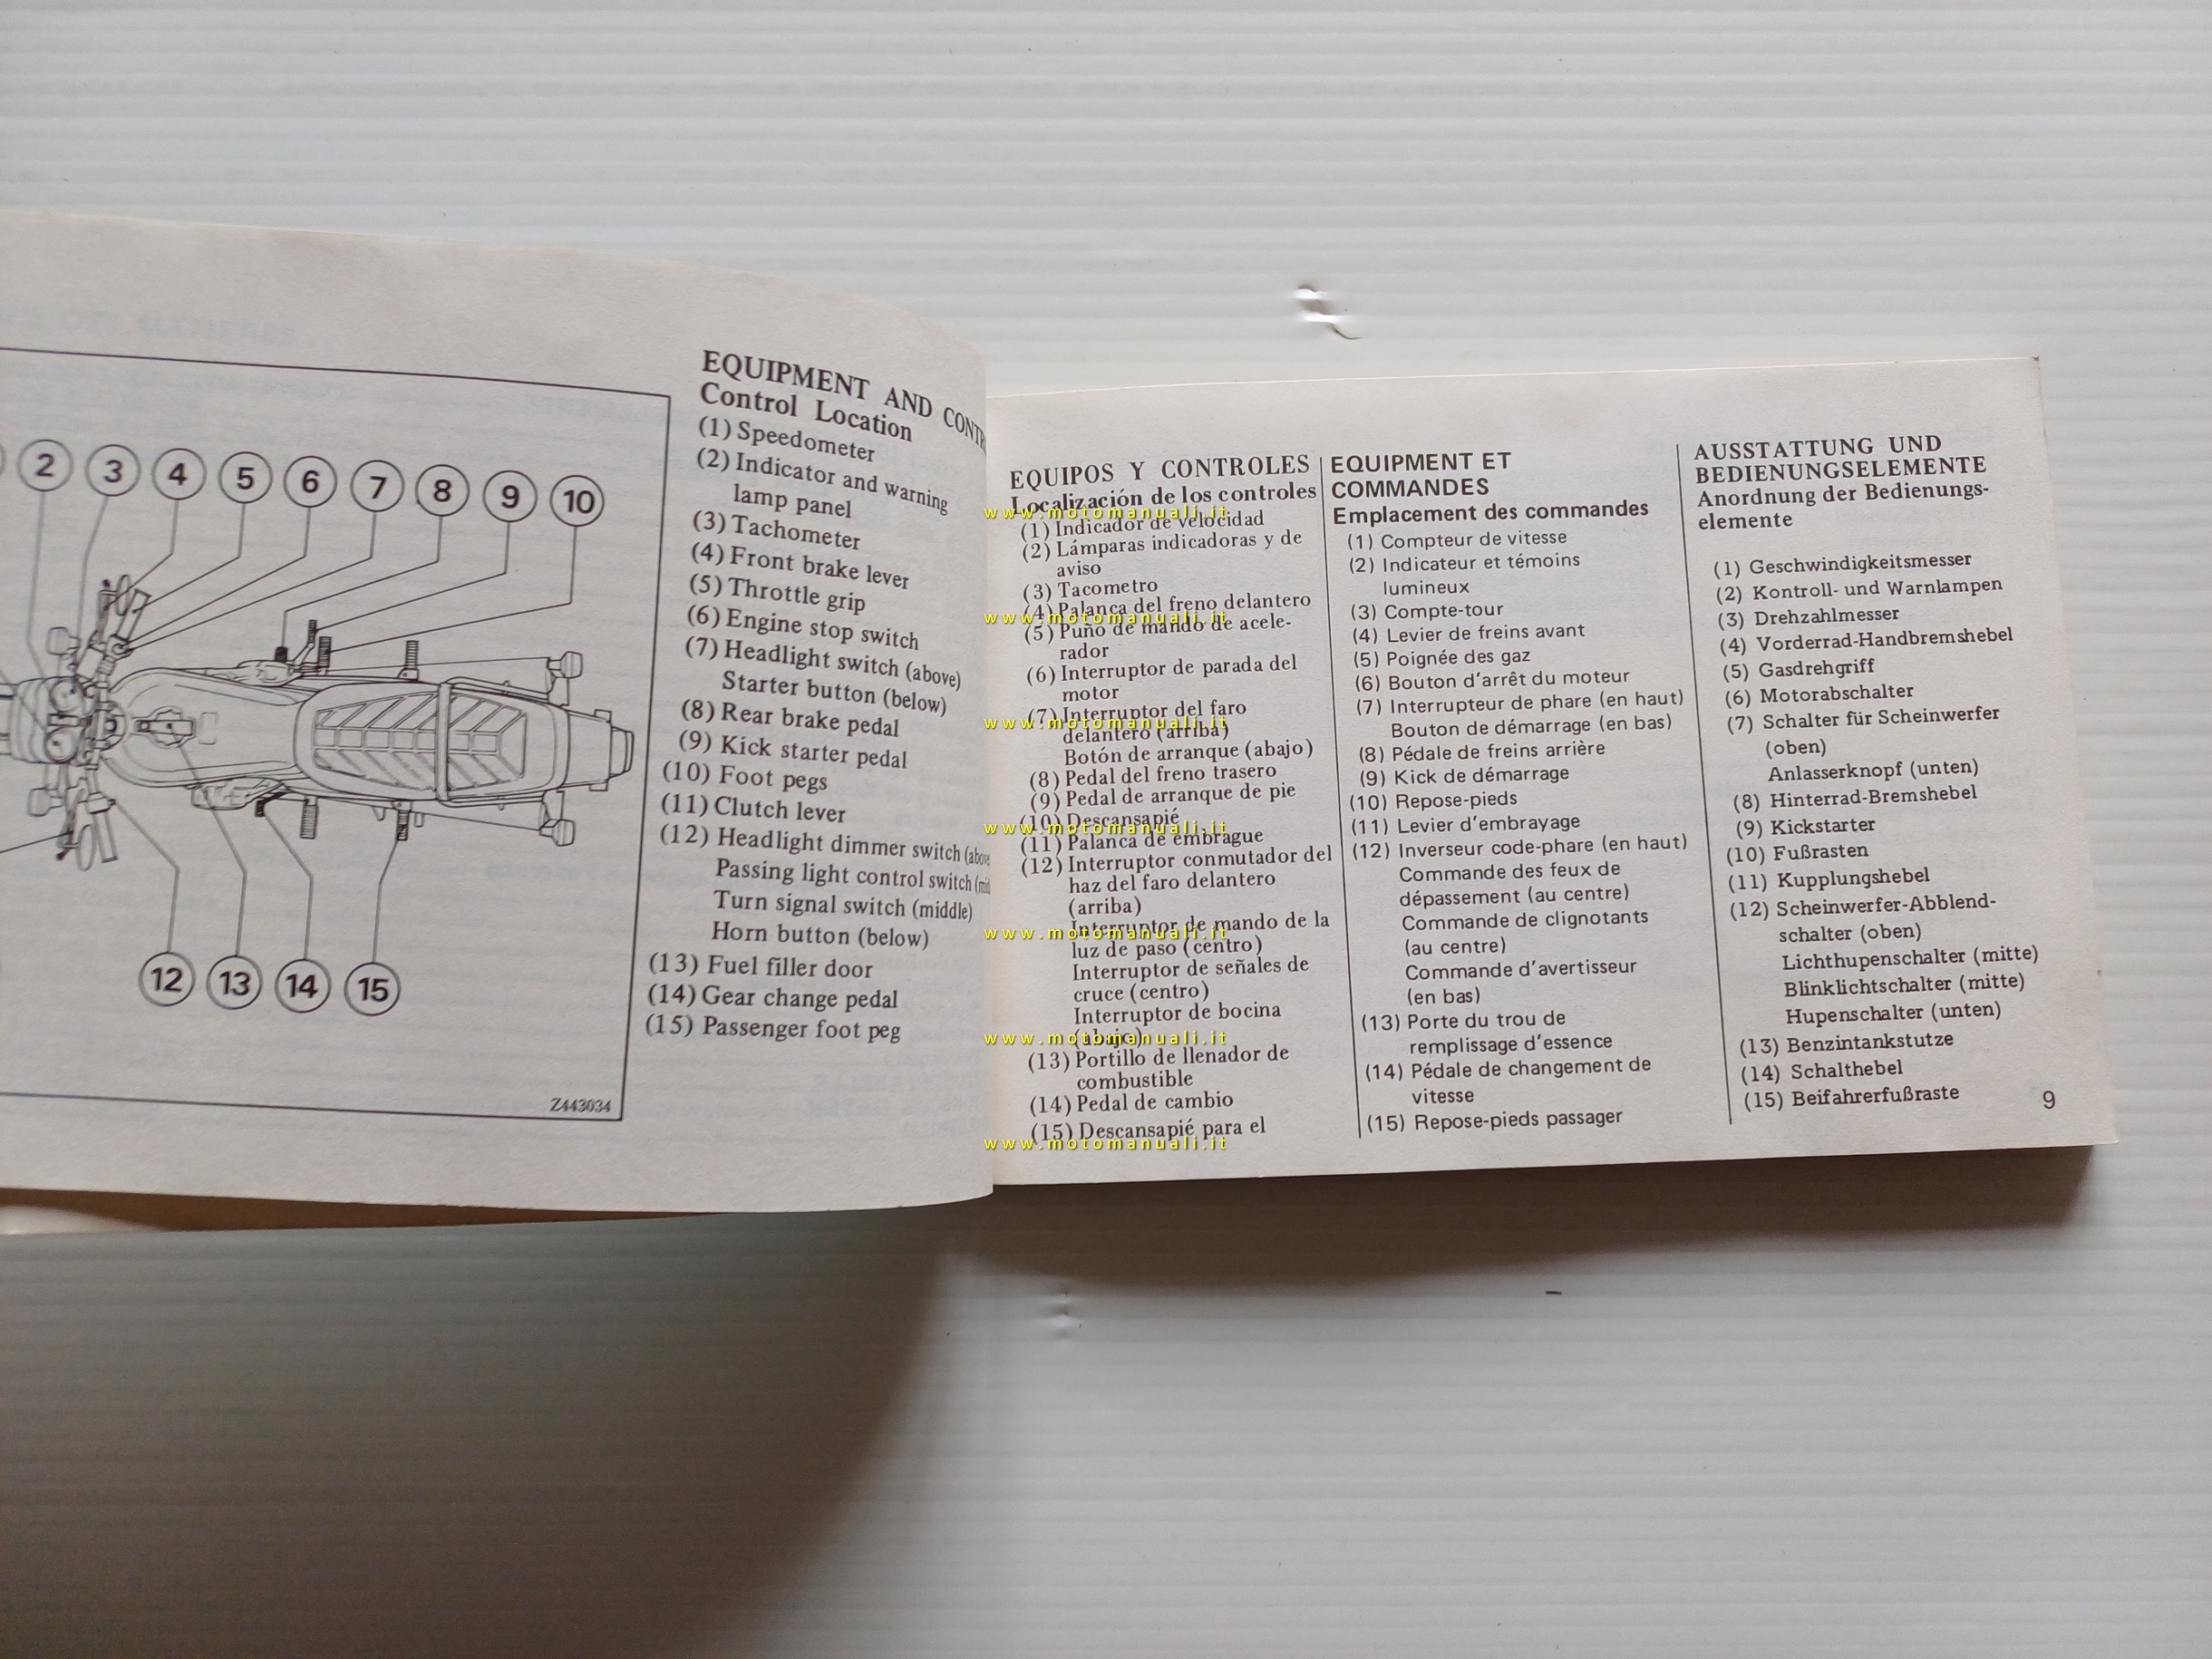 2
3
4
5
6
7
8
9
10
12
13
14
15
Z443034
EQUIPMENT AND
Control Location
(1) Speedometer
(2) Indicator and warning
lamp panel
(3) Tachometer
(4) Front brake lever
(5) Throttle grip
(6) Engine stop switch
(7) Headlight switch (above)
Starter button (below)
(8) Rear brake pedal
(9) Kick starter pedal
(10) Foot pegs
(11) Clutch lever
(12) Headlight dimmer switch
Passing light control switch
Turn signal switch (middle)
Horn button (below)
(13) Fuel filler door
(14) Gear change pedal
(15) Passenger foot peg
EQUIPOS Y CONTROLES
Localización de los controles
www.motomanuali.it
(1) Indicador de velocidad
(2) Lámparas indicadoras y de
aviso
(3) Tacometro
(4) Palanca del freno delantero
www.motomanuali.it
(5) Puño de mando de acele-
rador
(6) Interruptor de parada del
motor
(7) Interruptor del faro
www.motomanuali.it
delantero (arriba)
Botón de arranque (abajo)
(8) Pedal del freno trasero
(9) Pedal de arranque de pie
(10) Descansapié
www.motomanuali.it
(11) Palanca de embrague
(12) Interruptor conmutador del
haz del faro delantero
(arriba)
Interruptor de mando de la
www.motomanuali.it
luz de paso (centro)
Interruptor de señales de
cruce (centro)
Interruptor de bocina
(abajo)
www.motomanuali.it
(13) Portillo de llenador de
combustible
(14) Pedal de cambio
(15) Descansapié para el
www.motomanuali.it
EQUIPMENT ET
COMMANDES
Emplacement des commandes
(1) Compteur de vitesse
(2) Indicateur et témoins
lumineux
(3) Compte-tour
(4) Levier de freins avant
(5) Poignée des gaz
(6) Bouton d'arrêt du moteur
(7) Interrupteur de phare (en haut)
Bouton de démarrage (en bas)
(8) Pédale de freins arrière
(9) Kick de démarrage
(10) Repose-pieds
(11) Levier d'embrayage
(12) Inverseur code-phare (en haut)
Commande des feux de
dépassement (au centre)
Commande de clignotants
(au centre)
Commande d'avertisseur
(en bas)
(13) Porte du trou de
remplissage d'essence
(14) Pédale de changement de
vitesse
(15) Repose-pieds passager
AUSSTATTUNG UND
BEDIENUNGSELEMENTE
Anordnung der Bedienungs-
elemente
(1) Geschwindigkeitsmesser
(2) Kontroll- und Warnlampen
(3) Drehzahlmesser
(4) Vorderrad-Handbremshebel
(5) Gasdrehgriff
(6) Motorabschalter
(7) Schalter für Scheinwerfer
(oben)
Anlasserknopf (unten)
(8) Hinterrad-Bremshebel
(9) Kickstarter
(10) Fußrasten
(11) Kupplungshebel
(12) Scheinwerfer-Abblend-
schalter (oben)
Lichthupenschalter (mitte)
Blinklichtschalter (mitte)
Hupenschalter (unten)
(13) Benzintankstutze
(14) Schalthebel
(15) Beifahrerfußraste
9